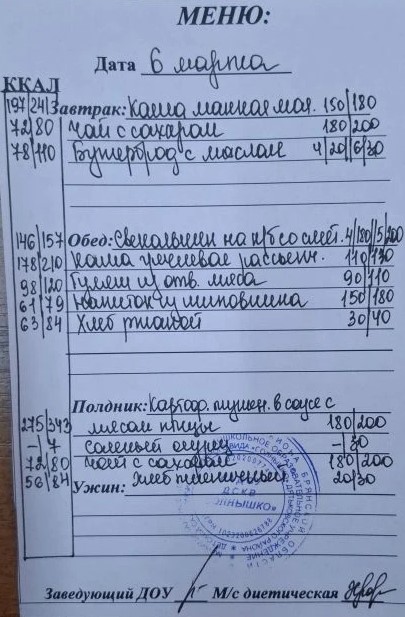 МЕНЮ:
Дата 6 марта
ККАЛ
197|24|3 Завтрак: Каша манная мол. 150|180
72|80 Чай с сахаром 180|200
78|110 Бутерброд с маслом 4|20||6|30
146|157 Обед: Свекольник на к/б со смет. 4|180||5|200
178|210 Каша гречневая рассыпч. 110|130
98|120 Гуляш из отв. мяса 90|110
61|79 Напиток из шиповника 150|180
63|84 Хлеб ржаной 30|40
Полдник: Картоф. тушен. в соусе с
275|343 мясом птицы 180|200
-|7 соленый огурец -|30
72|80 Чай с сахаром 180|200
56|84 Хлеб пшеничный 20|30
Ужин:
Заведующий ДОУ М/с диетическая